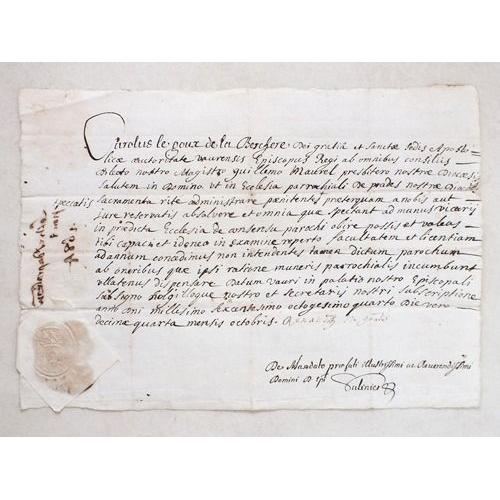 Carolus le Goux de la Berchere Dei gratia et Sanctæ Sedis Aposto-
licæ autoritate Vaurensis Episcopus Regi ab omnibus consiliis
Dilecto nostro Magistro Guillelmo Maurel presbitero nostræ Diœcesis
Salutem in Domino ut in Ecclesia parrochiali de prades nostræ Diœc
Sacramenta rite administrare pœnitentes præterquam a nobis aut
speccalis
jure reservatis absolvere et omnia que spectant ad munus vicarii
in predicta Ecclesia de consensu parochi obire possis et valeas
tibi capaci et idoneo in examine reperto facultatem et licentiam
ad annum concedimus non intendentes tamen Dictum parochum
ab oneribus que ipsi ratione muneris parrochialis incumbunt
ullatenus dispensare Datum Vauri in palatio nostro Episcopali
sub signo sigilloque nostro et secretarii nostri subscriptione
anno Dni millesimo sexcentesimo octogesimo quarto Die vero
decima quarta mensis octobris.
De Mandato præfati illustrissimi ac Reverendissimi
Domini D Epi